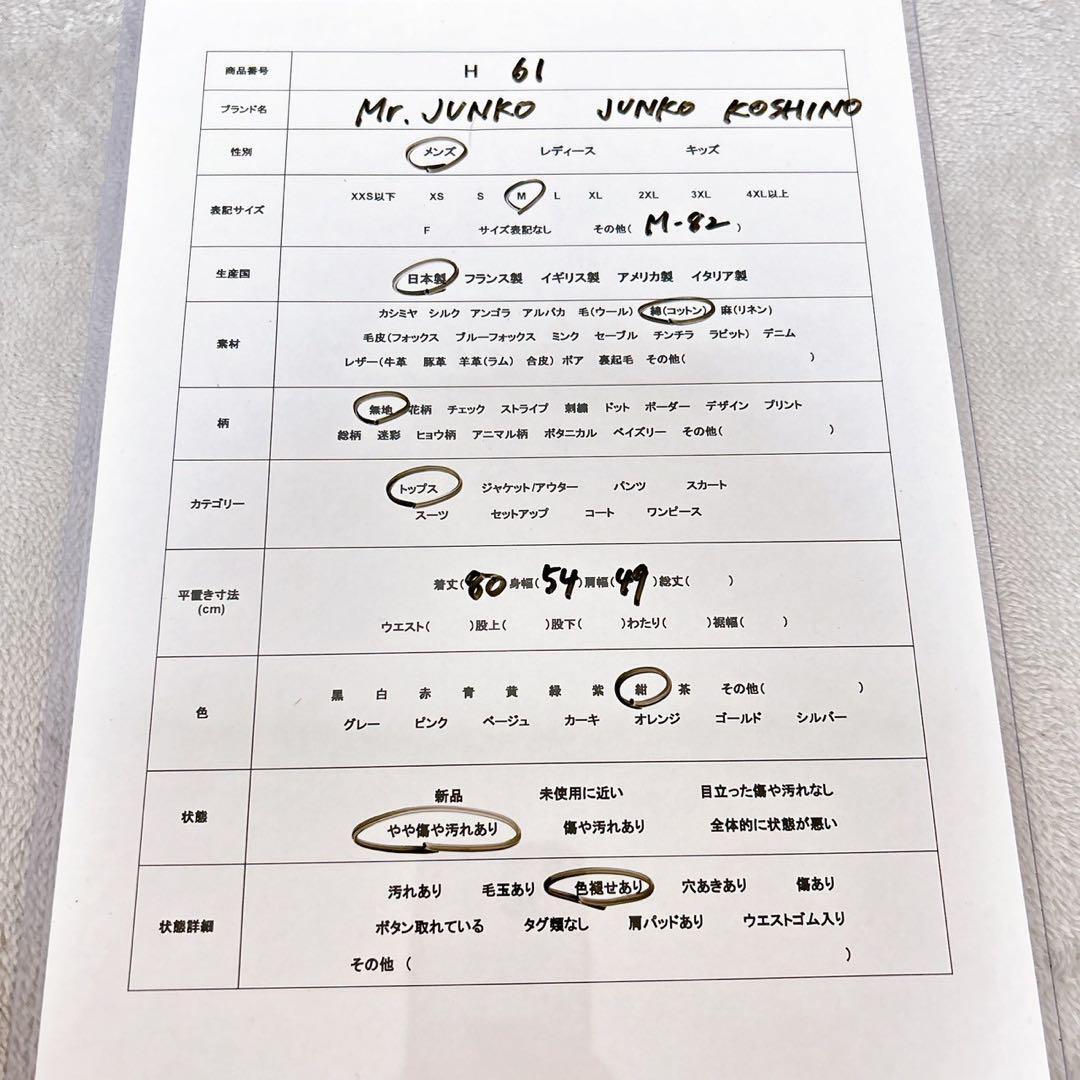 商品番号 H 61
ブランド名 Mr. JUNKO JUNKO KOSHINO
性別 メンズ レディース キッズ
表記サイズ XXS以下 XS S M L XL 2XL 3XL 4XL以上
F サイズ表記なし その他( M-82 )
生産国 日本製 フランス製 イギリス製 アメリカ製 イタリア製
素材 カシミヤ シルク アンゴラ アルパカ 毛(ウール) 綿(コットン) 麻(リネン)
毛皮(フォックス ブルーフォックス ミンク セーブル チンチラ ラビット) デニム
レザー(牛革 豚革 羊革(ラム) 合皮) ボア 裏起毛 その他( )
柄 無地 花柄 チェック ストライプ 刺繍 ドット ボーダー デザイン プリント
総柄 迷彩 ヒョウ柄 アニマル柄 ボタニカル ペイズリー その他( )
カテゴリー トップス ジャケット/アウター パンツ スカート
スーツ セットアップ コート ワンピース
平置き寸法 (cm) 着丈(80 身幅(54)肩幅(49)総丈( )
ウエスト( )股上( )股下( )わたり( )裾幅( )
色 黒 白 赤 青 黄 緑 紫 紺 茶 その他( )
グレー ピンク ベージュ カーキ オレンジ ゴールド シルバー
状態 新品 未使用に近い 目立った傷や汚れなし
やや傷や汚れあり 傷や汚れあり 全体的に状態が悪い
状態詳細 汚れあり 毛玉あり 色褪せあり 穴あきあり 傷あり
ボタン取れている タグ類なし 肩パッドあり ウエストゴム入り
その他 ( )